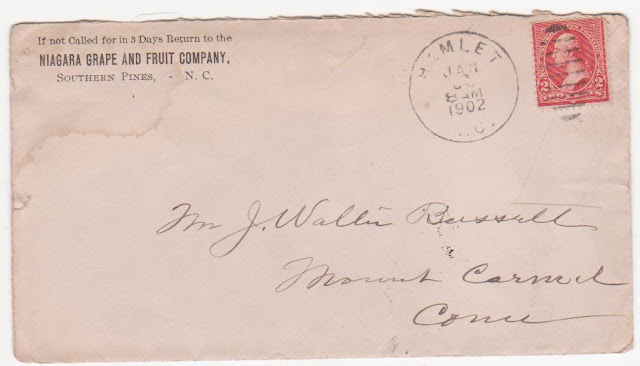 If not Called for in 3 Days Return to the
NIAGARA GRAPE AND FRUIT COMPANY,
SOUTHERN PINES, - N. C.
HAMLET
JAN
8 AM
1902
N.C.
2 2
Mr J. Walter Bassett
Mount Carmel
Conn